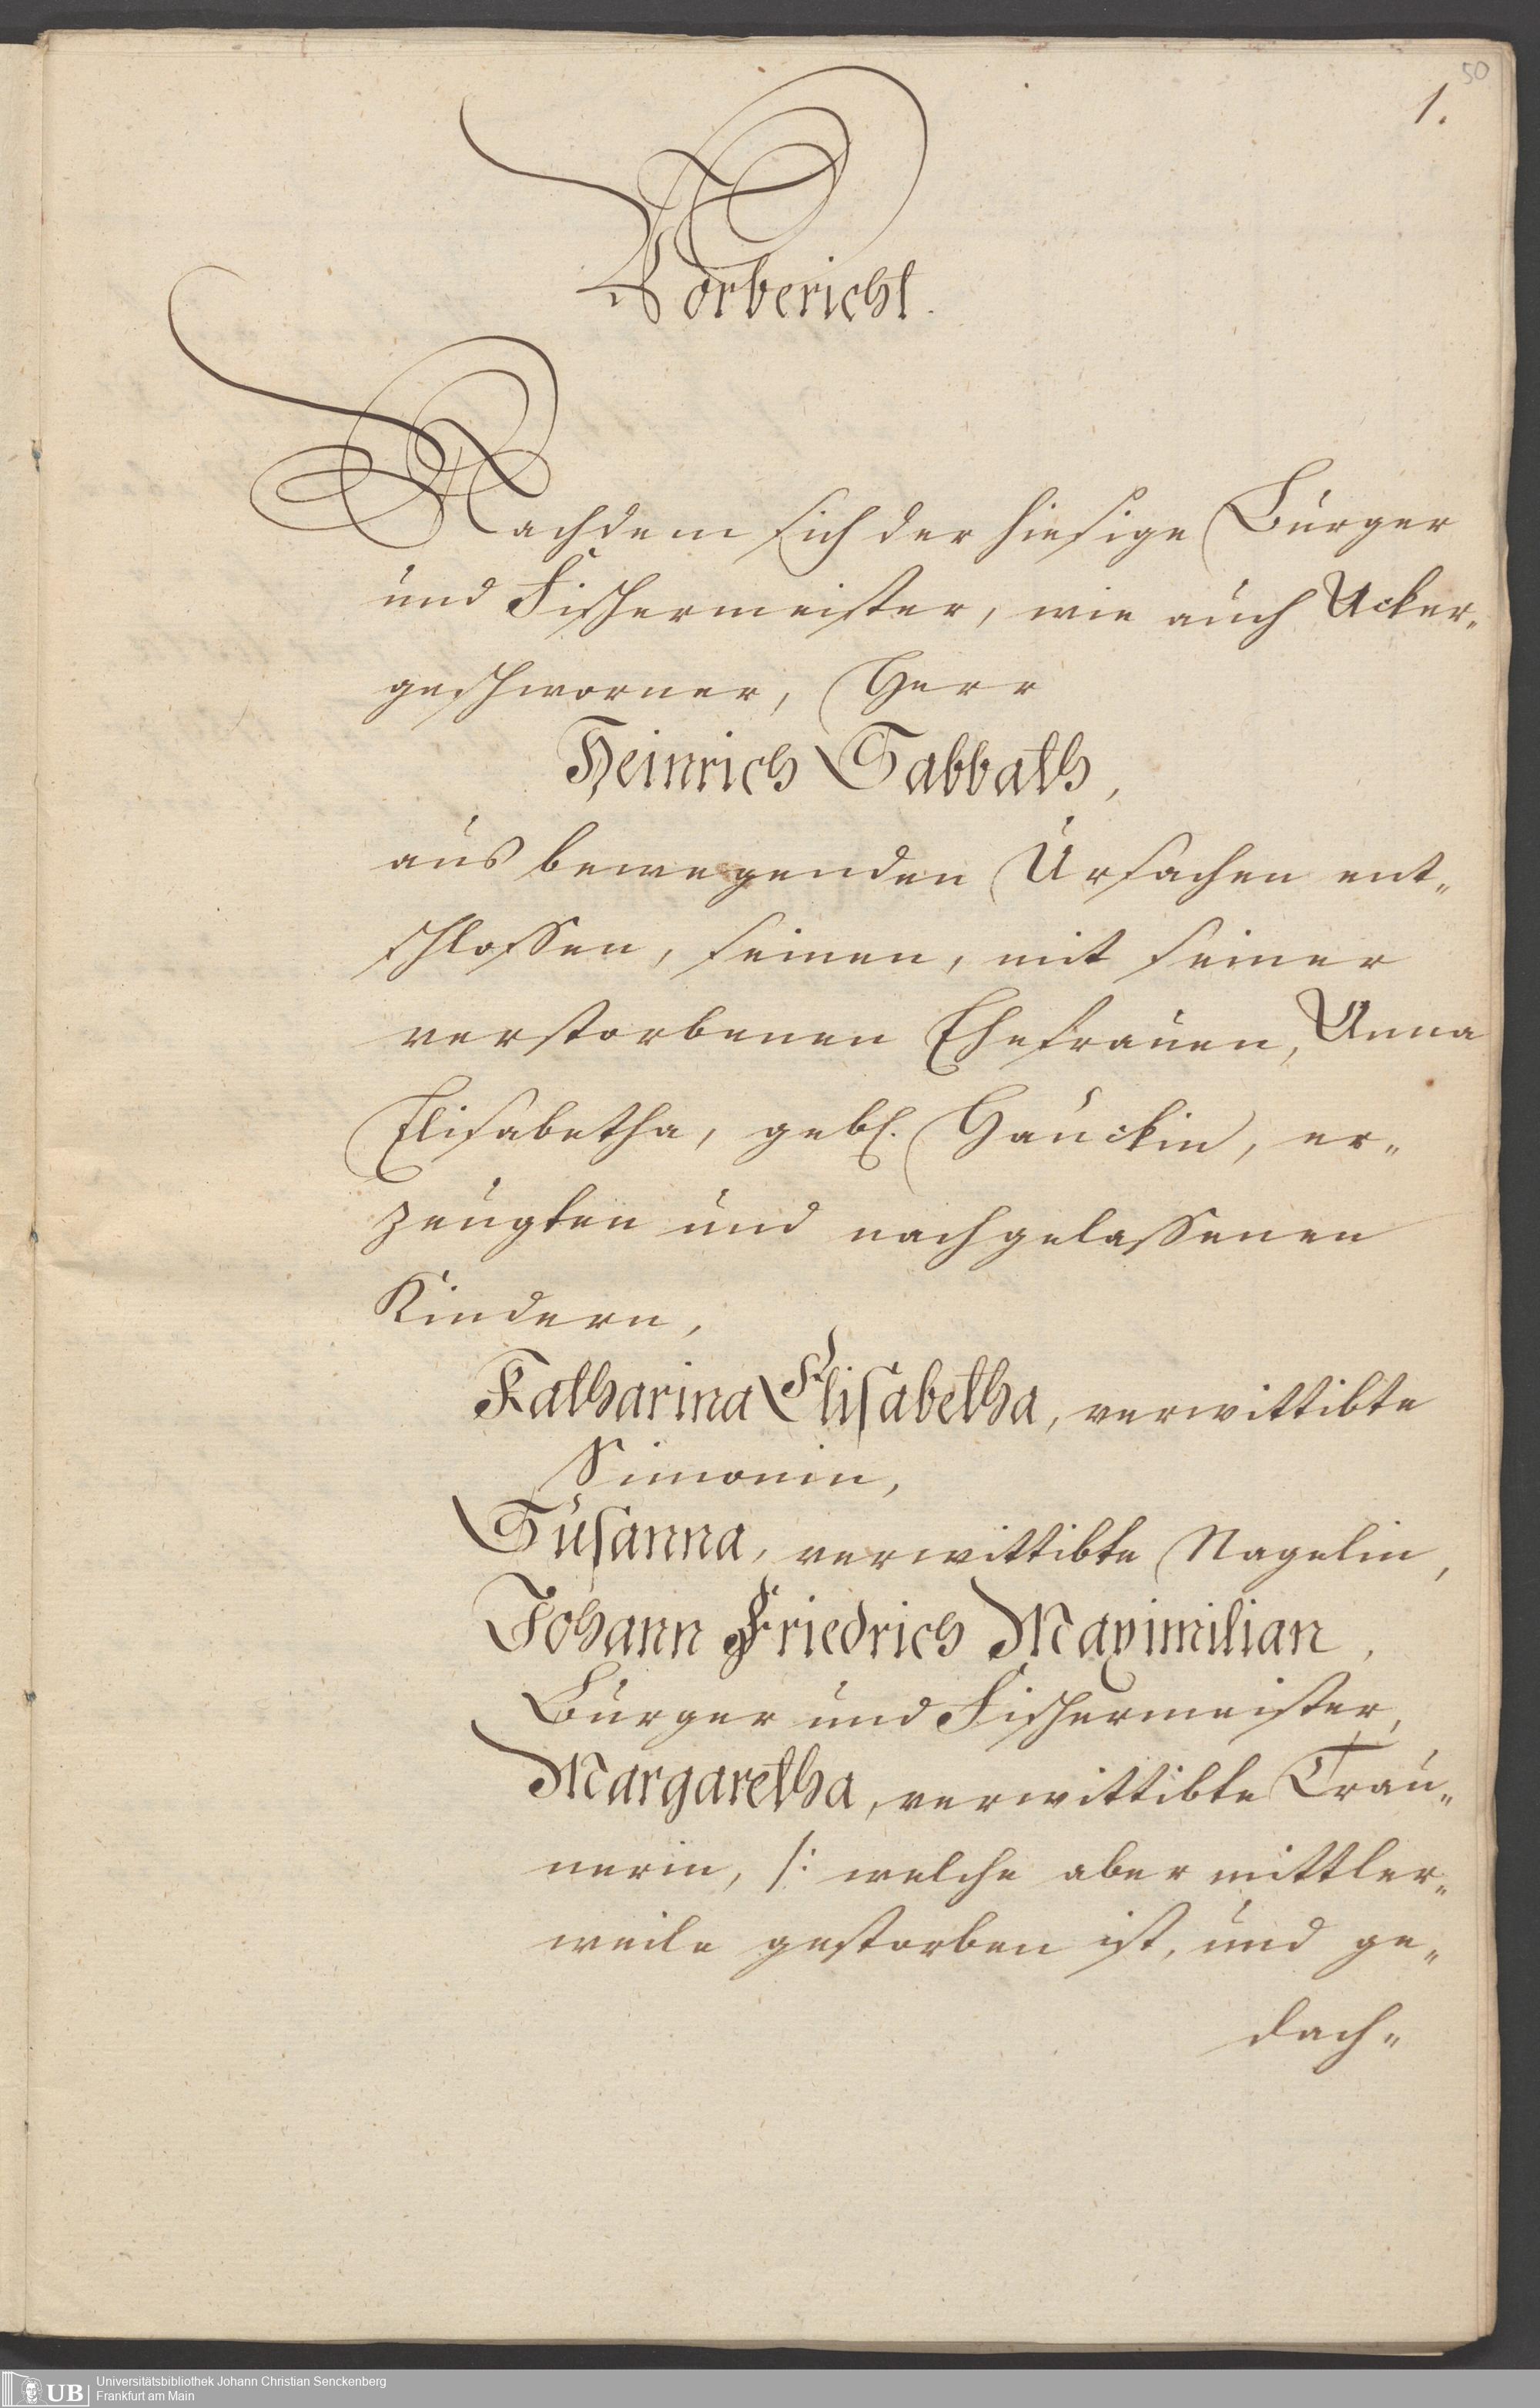 50
1.
Vorbericht.
Nachdem sich der hiesige Bürger
und Fischermeister, wie auch Acker„
geschworner, Herr
Heinrich Sabbath,
aus bewegenden Ursachen ent„
schlossen, seinen, mit seiner
verstorbenen Ehefrauen, Anna
Elisabetha, gebl. Hauckin, er„
zeugten und nachgelassenen
Kindern,
Katharina Elisabetha, verwittibte
Simonin,
Susanna, verwittibte Nagelin,
Johann Friedrich Maximilian,
Bürger und Fischermeister,
Margaretha, verwittibte Trau„
nerin, /: welche aber mittler„
weile gestorben ist, und ge„
dach„
UB
Universitätsbibliothek Johann Christian Senckenberg
Frankfurt am Main